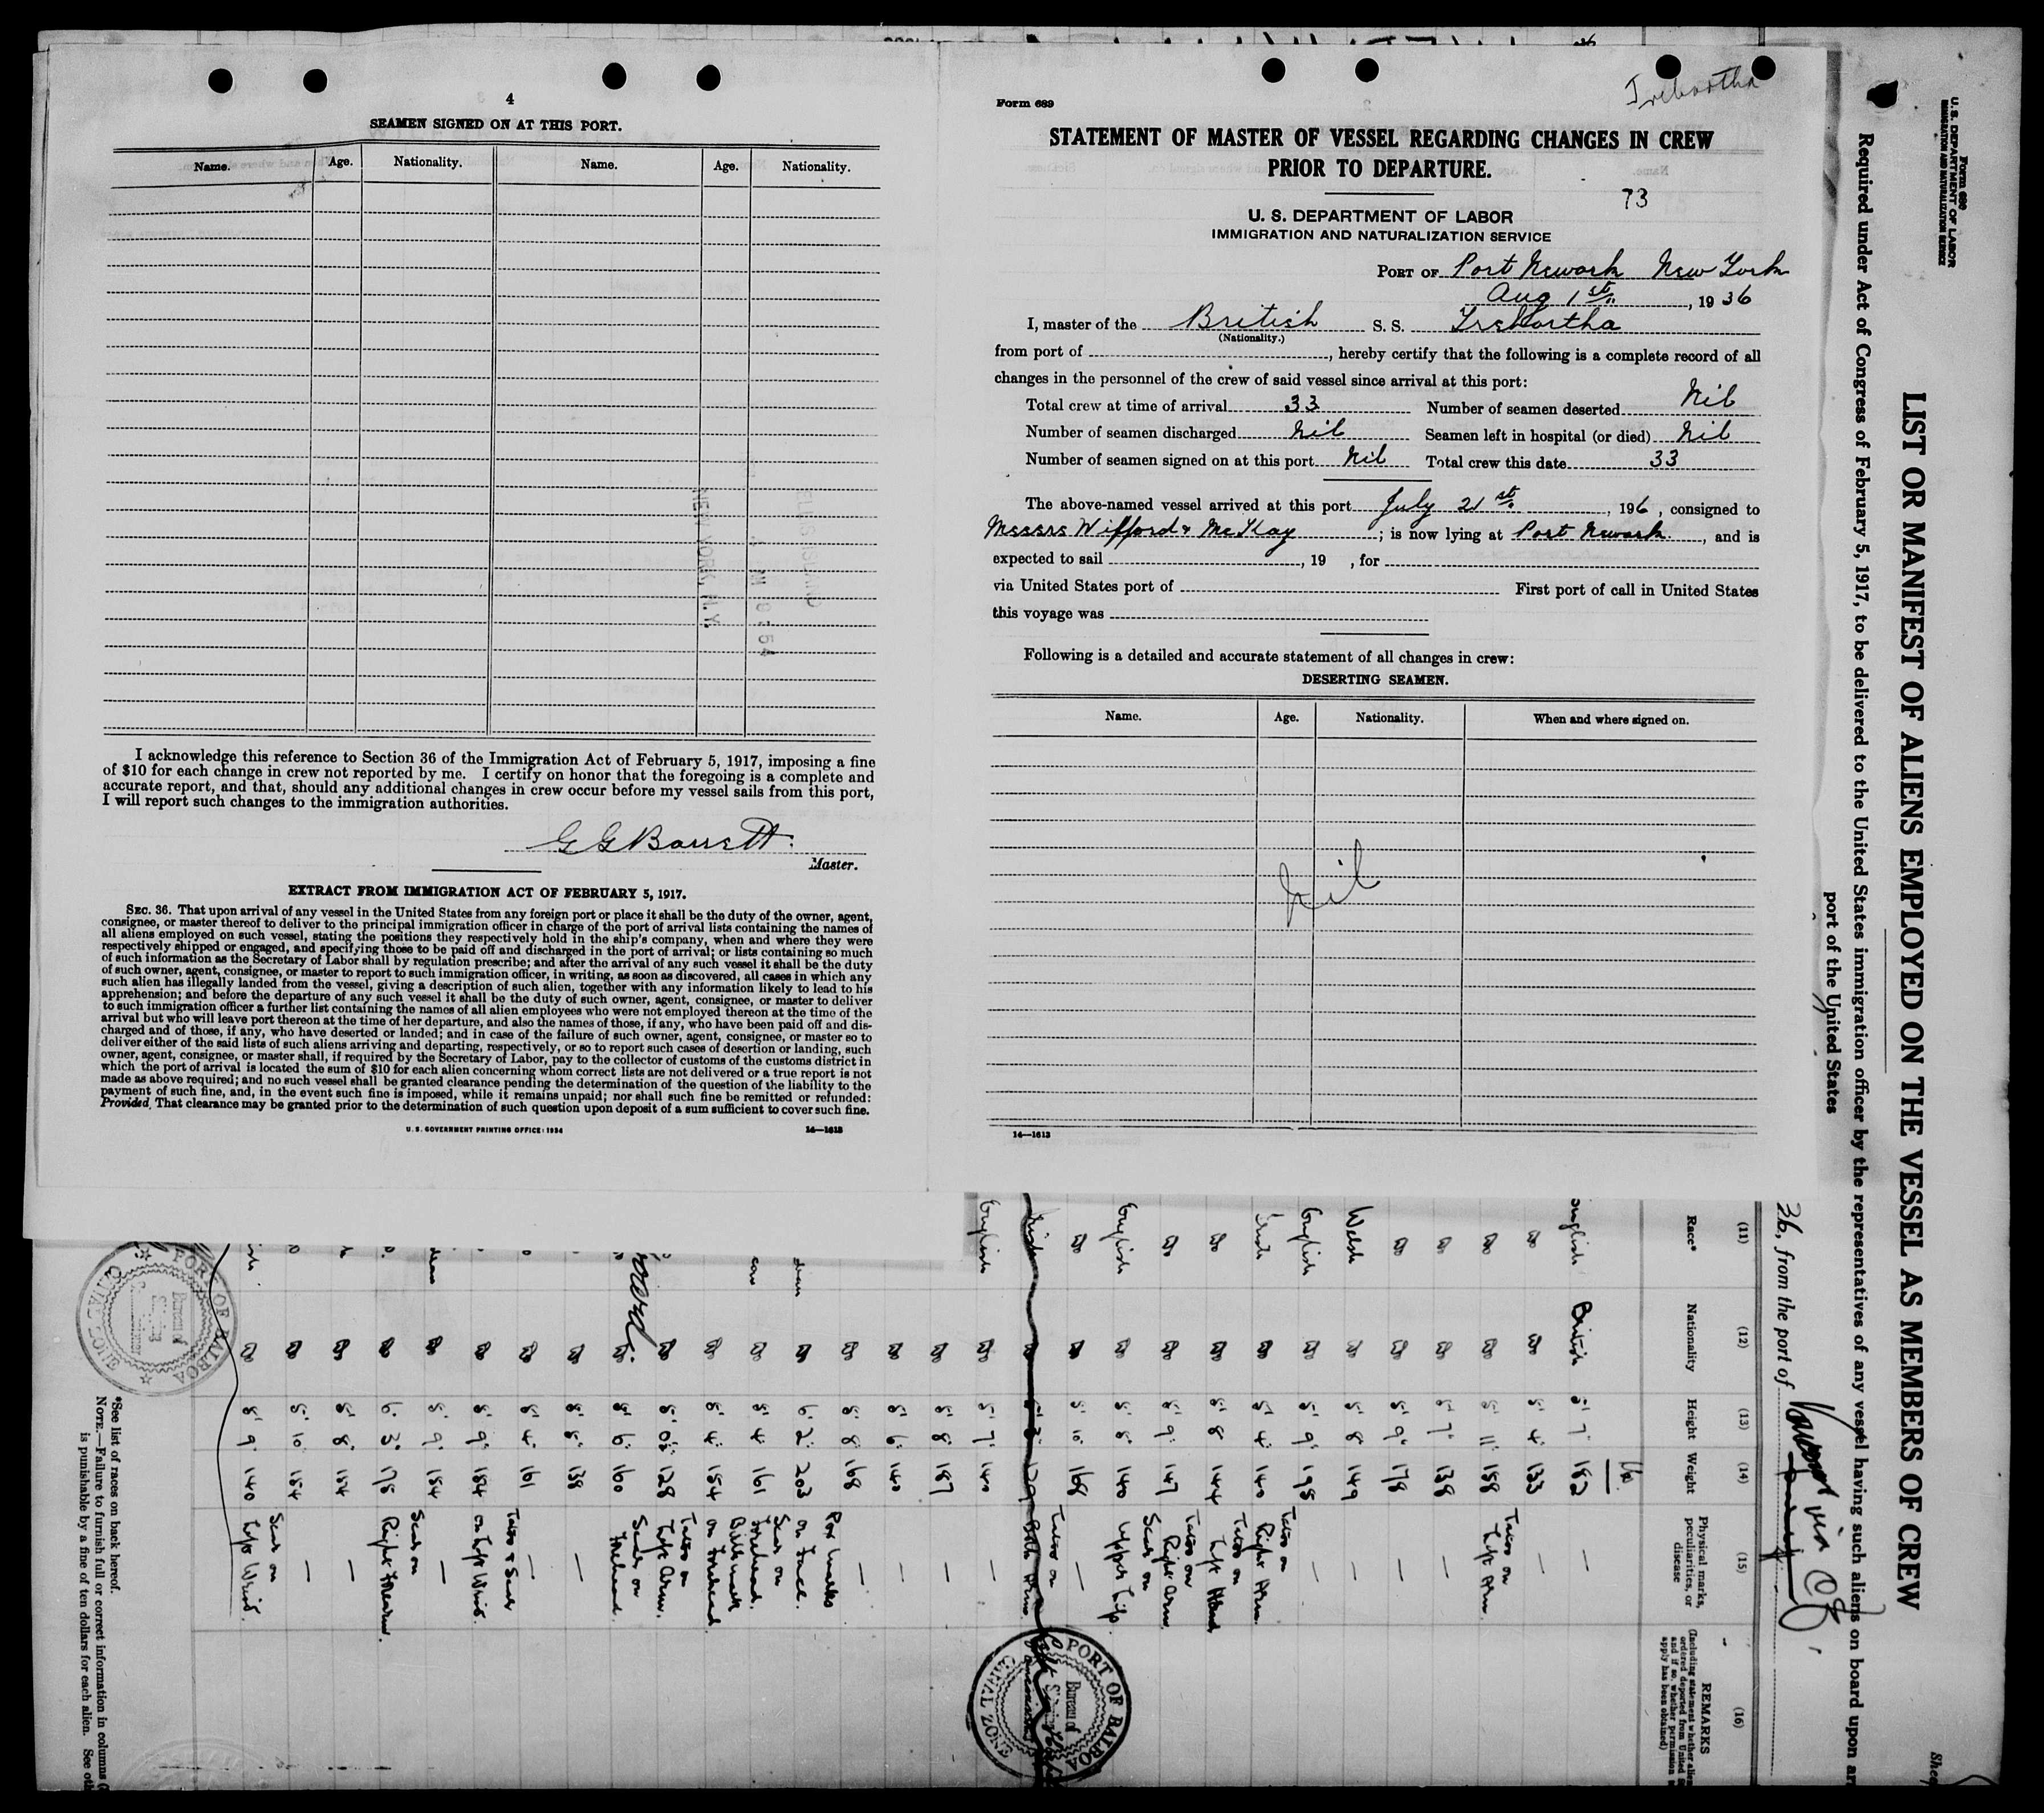 4
SEAMEN SIGNED ON AT THIS PORT.
Name. Age. Nationality. Name. Age. Nationality.
ELLIS ISLAND
NEW YORK, N.Y.
I acknowledge this reference to Section 36 of the Immigration Act of February 5, 1917, imposing a fine
of $10 for each change in crew not reported by me. I certify on honor that the foregoing is a complete and
accurate report, and that, should any additional changes in crew occur before my vessel sails from this port,
I will report such changes to the immigration authorities.
G G Barrett.
Master.
EXTRACT FROM IMMIGRATION ACT OF FEBRUARY 5, 1917.
SEC. 36. That upon arrival of any vessel in the United States from any foreign port or place it shall be the duty of the owner, agent,
consignee, or master thereof to deliver to the principal immigration officer in charge of the port of arrival lists containing the names of
all aliens employed on such vessel, stating the positions they respectively hold in the ship's company, when and where they were
respectively shipped or engaged, and specifying those to be paid off and discharged in the port of arrival; or lists containing so much
of such information as the Secretary of Labor shall by regulation prescribe; and after the arrival of any such vessel it shall be the duty
of such owner, agent, consignee, or master to report to such immigration officer, in writing, as soon as discovered, all cases in which any
such alien has illegally landed from the vessel, giving a description of such alien, together with any information likely to lead to his
apprehension; and before the departure of any such vessel it shall be the duty of such owner, agent, consignee, or master to deliver
to such immigration officer a further list containing the names of all alien employees who were not employed thereon at the time of the
arrival but who will leave port thereon at the time of her departure, and also the names of those, if any, who have been paid off and dis-
charged and of those, if any, who have deserted or landed; and in case of the failure of such owner, agent, consignee, or master so to
deliver either of the said lists of such aliens arriving and departing, respectively, or so to report such cases of desertion or landing, such
owner, agent, consignee, or master shall, if required by the Secretary of Labor, pay to the collector of customs of the customs district in
which the port of arrival is located the sum of $10 for each alien concerning whom correct lists are not delivered or a true report is not
made as above required; and no such vessel shall be granted clearance pending the determination of the question of the liability to the
payment of such fine, and, in the event such fine is imposed, while it remains unpaid; nor shall such fine be remitted or refunded:
Provided, That clearance may be granted prior to the determination of such question upon deposit of a sum sufficient to cover such fine.
U. S. GOVERNMENT PRINTING OFFICE: 1934 14—1613
Form 689
STATEMENT OF MASTER OF VESSEL REGARDING CHANGES IN CREW
PRIOR TO DEPARTURE.
73
U. S. DEPARTMENT OF LABOR
IMMIGRATION AND NATURALIZATION SERVICE
PORT OF Port Newark New York
Aug 1st, 1936
I, master of the British S. S. Trebartha
(Nationality.)
from port of , hereby certify that the following is a complete record of all
changes in the personnel of the crew of said vessel since arrival at this port:
Total crew at time of arrival 33 Number of seamen deserted Nil
Number of seamen discharged Nil Seamen left in hospital (or died) Nil
Number of seamen signed on at this port Nil Total crew this date 33
The above-named vessel arrived at this port July 21st, 196, consigned to
Messrs Wifford & McKay; is now lying at Port Newark, and is
expected to sail , 19 , for
via United States port of First port of call in United States
this voyage was
Following is a detailed and accurate statement of all changes in crew:
DESERTING SEAMEN.
Name. Age. Nationality. When and where signed on.
Nil
14—1613
Form 689
U. S. DEPARTMENT OF LABOR
IMMIGRATION AND NATURALIZATION SERVICE
LIST OR MANIFEST OF ALIENS EMPLOYED ON THE VESSEL AS MEMBERS OF CREW
Required under Act of Congress of February 5, 1917, to be delivered to the United States immigration officer by the representatives of any vessel having such aliens on board upon
port of the United States
36, from the port of via C
(11) (12) (13) (14) (15) (16)
Race* Nationality Height Weight Physical marks, peculiarities, or disease REMARKS
lbs.
English British 5' 7" 182 —
do do 5' 4" 133 —
do do 5' 11" 158 Tattoo on Left Arm
do do 5' 7" 138 —
do do 5' 9" 178 —
Welsh do 5' 8" 149 —
English do 5' 9" 198 —
Irish do 5' 4" 140 Tattoo on Right Arm
do do 5' 8" 144 Tattoo on Left Hand
do do 5' 9" 147 Tattoo on Right Arm
English do 5' 8" 140 Scar on Upper Lip
do do 5' 10" 168 —
Tattoo on Both Arms
English do 5' 7" 140 —
do 5' 8" 187 —
do 5' 6" 140 —
do 5' 8" 168 —
do 6' 2" 203 Pox Marks on Face.
do 5' 4" 161 Scar on Forehead.
do 5' 4" 154 Birthmark on Forehead
do 128 Tattoo on Left Arm.
do 5' 6" 160 Scar on Forehead.
do 138 —
do 5' 4" 161 —
do 5' 9" 184 Tattoo & Scar on Left Wrist.
do 5' 9" 154 —
do 6' 3" 178 Scar on Right Forearm.
do 5' 8" 154 —
do 5' 10" 154 —
do 5' 9" 140 Scar on Left Wrist.
PORT OF BALBOA
Bureau of
CANAL ZONE
PORT OF BALBOA
Bureau of
CANAL ZONE
*See list of races on back hereof.
NOTE.—Failure to furnish full or correct information in columns
is punishable by a fine of ten dollars for each alien. See